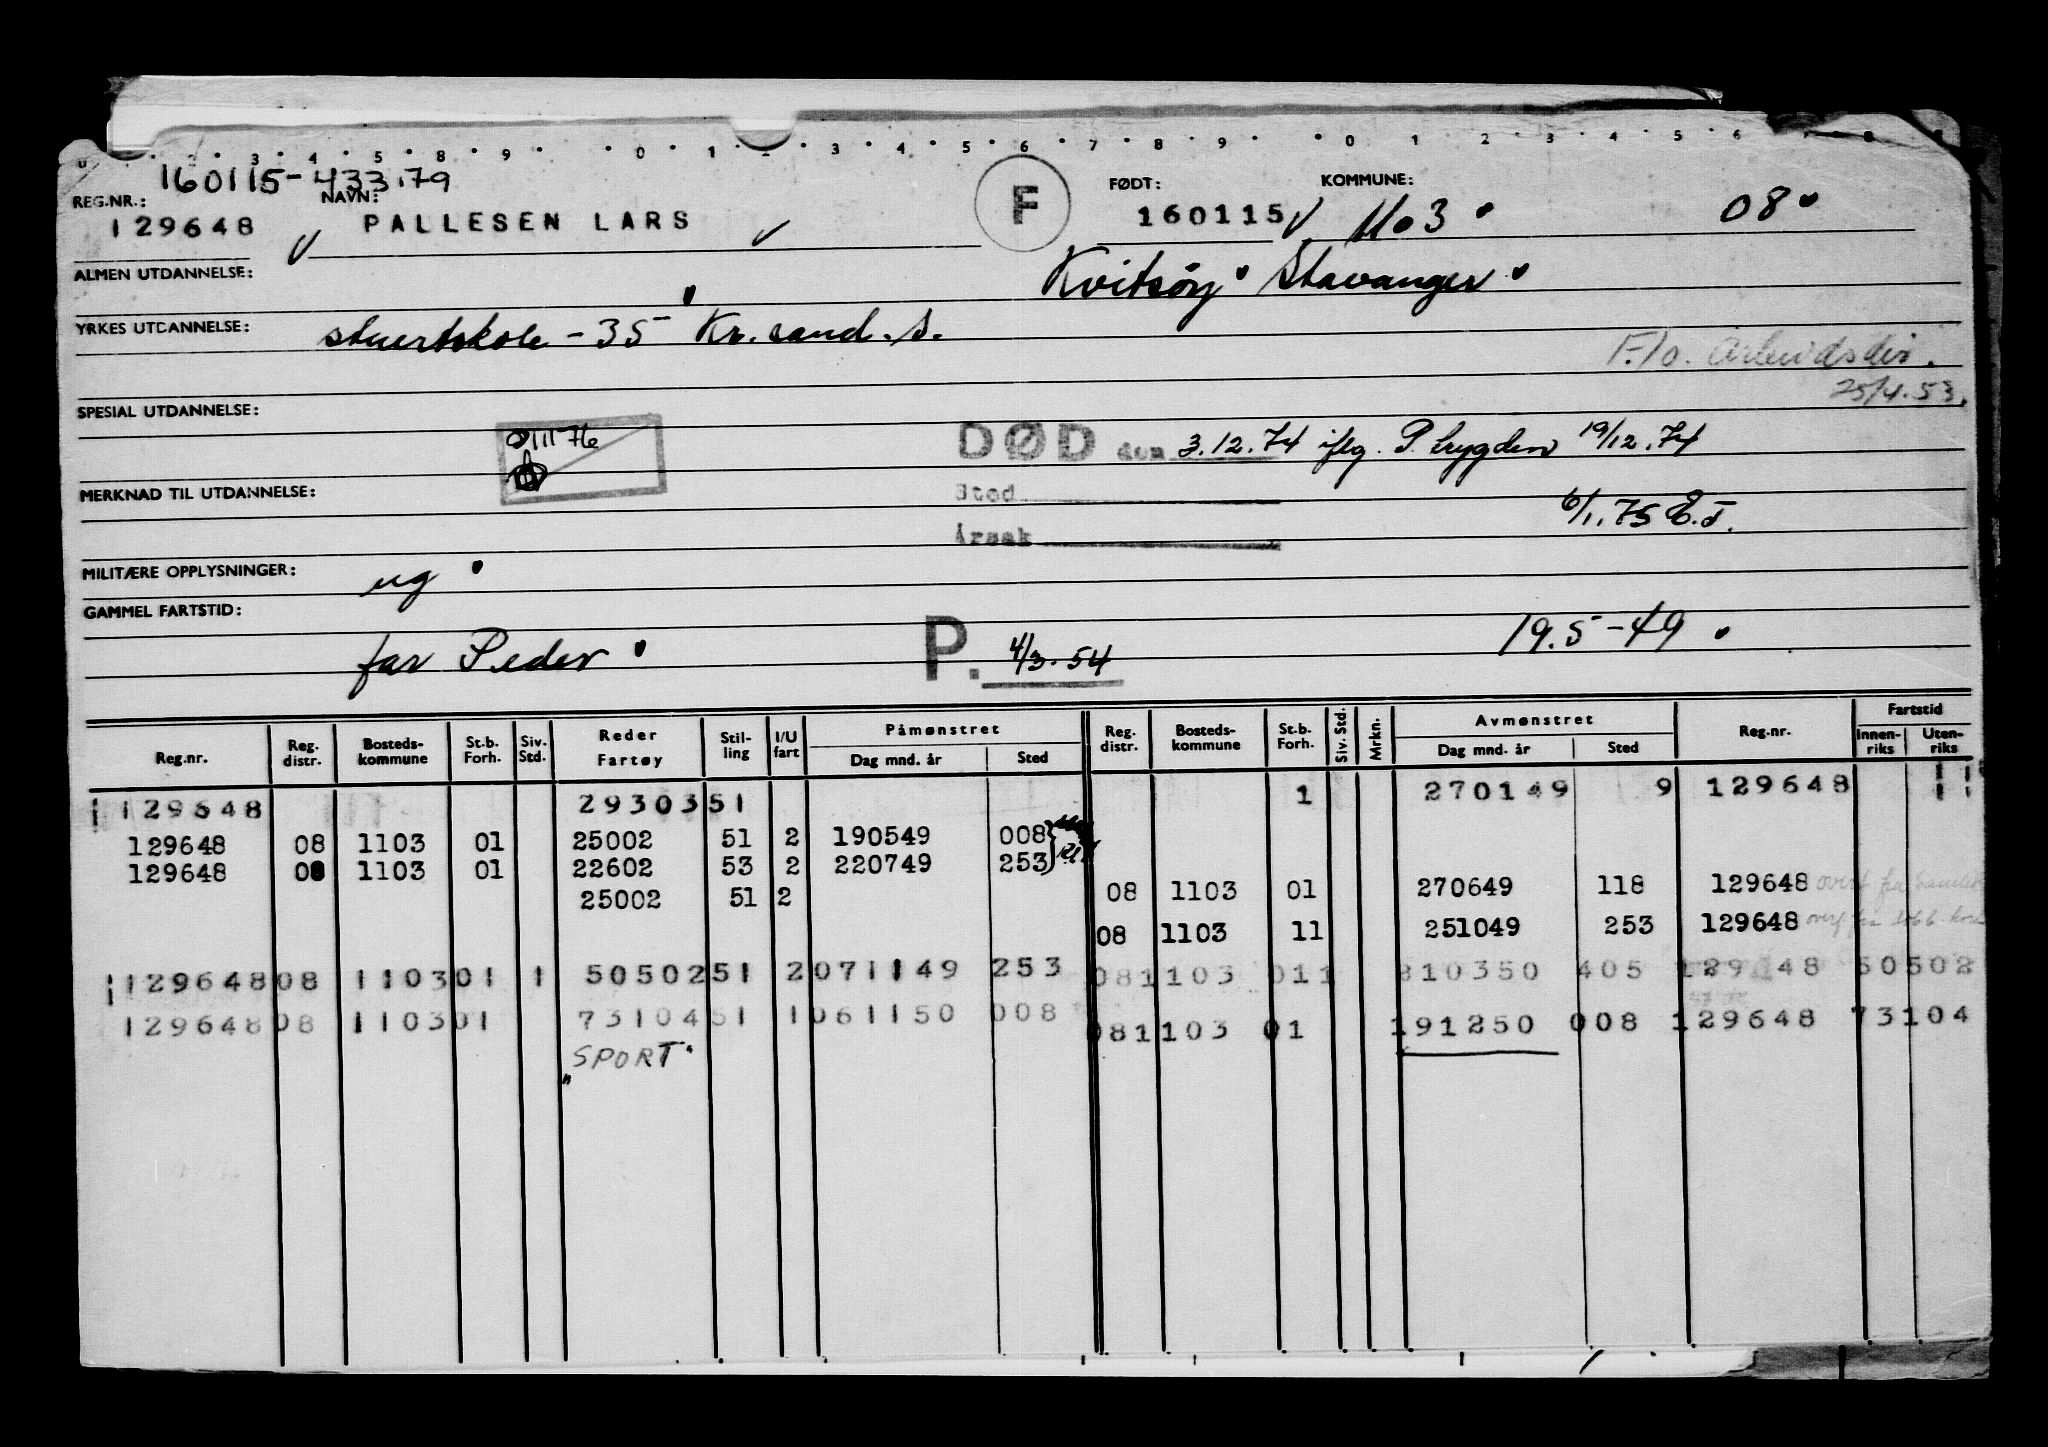 160115-433.79
REG.NR.: NAVN: F FØDT: KOMMUNE:
129648 PALLESEN LARS 160115 1103 08
ALMEN UTDANNELSE: Kvitsøy Stavanger
YRKES UTDANNELSE: stuertskole - 35 Kr.sand.S.
F/o. Arbeidsdir.
25/4.53.
SPESIAL UTDANNELSE:
011176
DØD den 3.12.74 iflg. P.trygden 19/12.74
MERKNAD TIL UTDANNELSE: Sted
6/1.75 E.T.
Årsak
MILITÆRE OPPLYSNINGER: ug
GAMMEL FARTSTID:
far Peder P. 4/3.54 19.5-49
Reg.nr. Reg. distr. Bosteds-kommune St.b. Forh. Siv. Std. Reder Fartøy Stil-ling I/U fart Påmønstret Dag mnd. år Sted Reg. distr. Bosteds-kommune St.b. Forh. Siv. Std. Mrkn. Avmønstret Dag mnd. år Sted Reg.nr. Fartstid Innen-riks Uten-riks
129648 29303 51 1 270149 9 129648
129648 08 1103 01 25002 51 2 190549 008
129648 08 1103 01 22602 53 2 220749 253
25002 51 2 08 1103 01 270649 118 129648
08 1103 11 251049 253 129648
129648 08 1103 01 1 50502 51 2 071149 253 08 1103 011 310350 405 129648 50502
129648 08 1103 01 73104 51 1 061150 008 08 1103 01 191250 008 129648 73104
"SPORT"